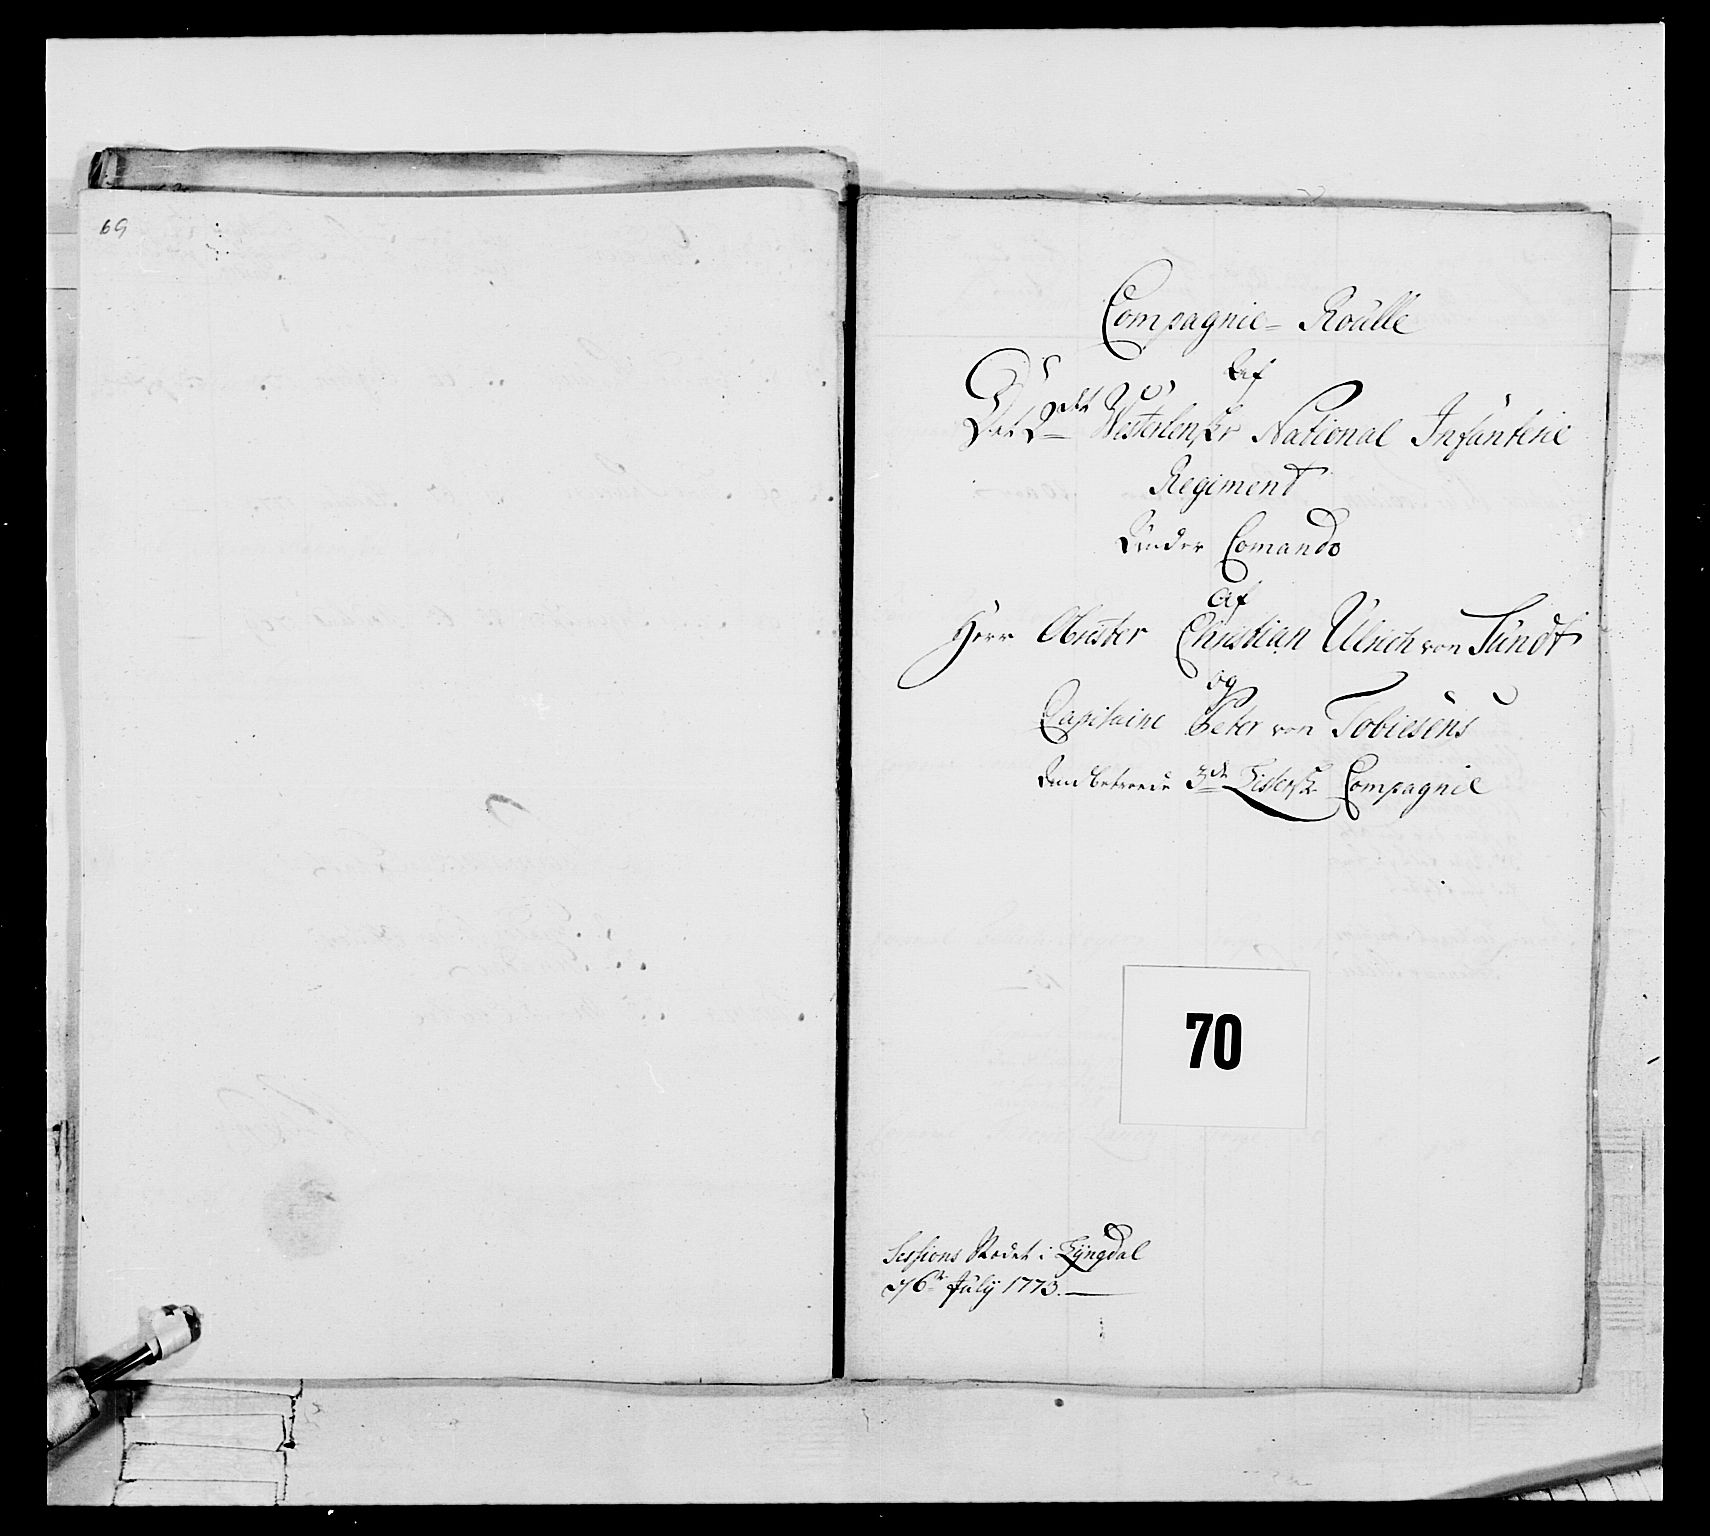 69
Compagnie-Roulle
Af
Det 2det Westerlenske National Infanterie
Regiment
Under Comando
Af
Herr Obrister Christian Ulrich von Sundt
og
Capitaine Peter von Tobiesens
Under betroede 3de Listerske Compagnie
70
Sessions Stædet i Lÿngdal
d 6te Julÿ 1773.